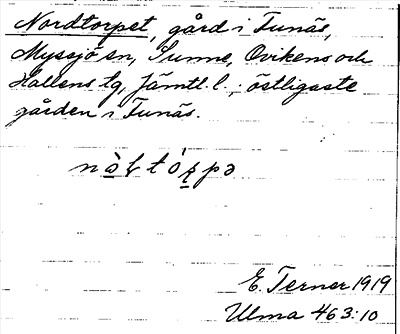 Nordtorpet, gård i Tunäs,
Myssjö sn, Sunne, Ovikens och
Hallens tg, Jämtl. l.; östligaste
gården i Tunäs.
E. Terner 1919
Ulma 463:10